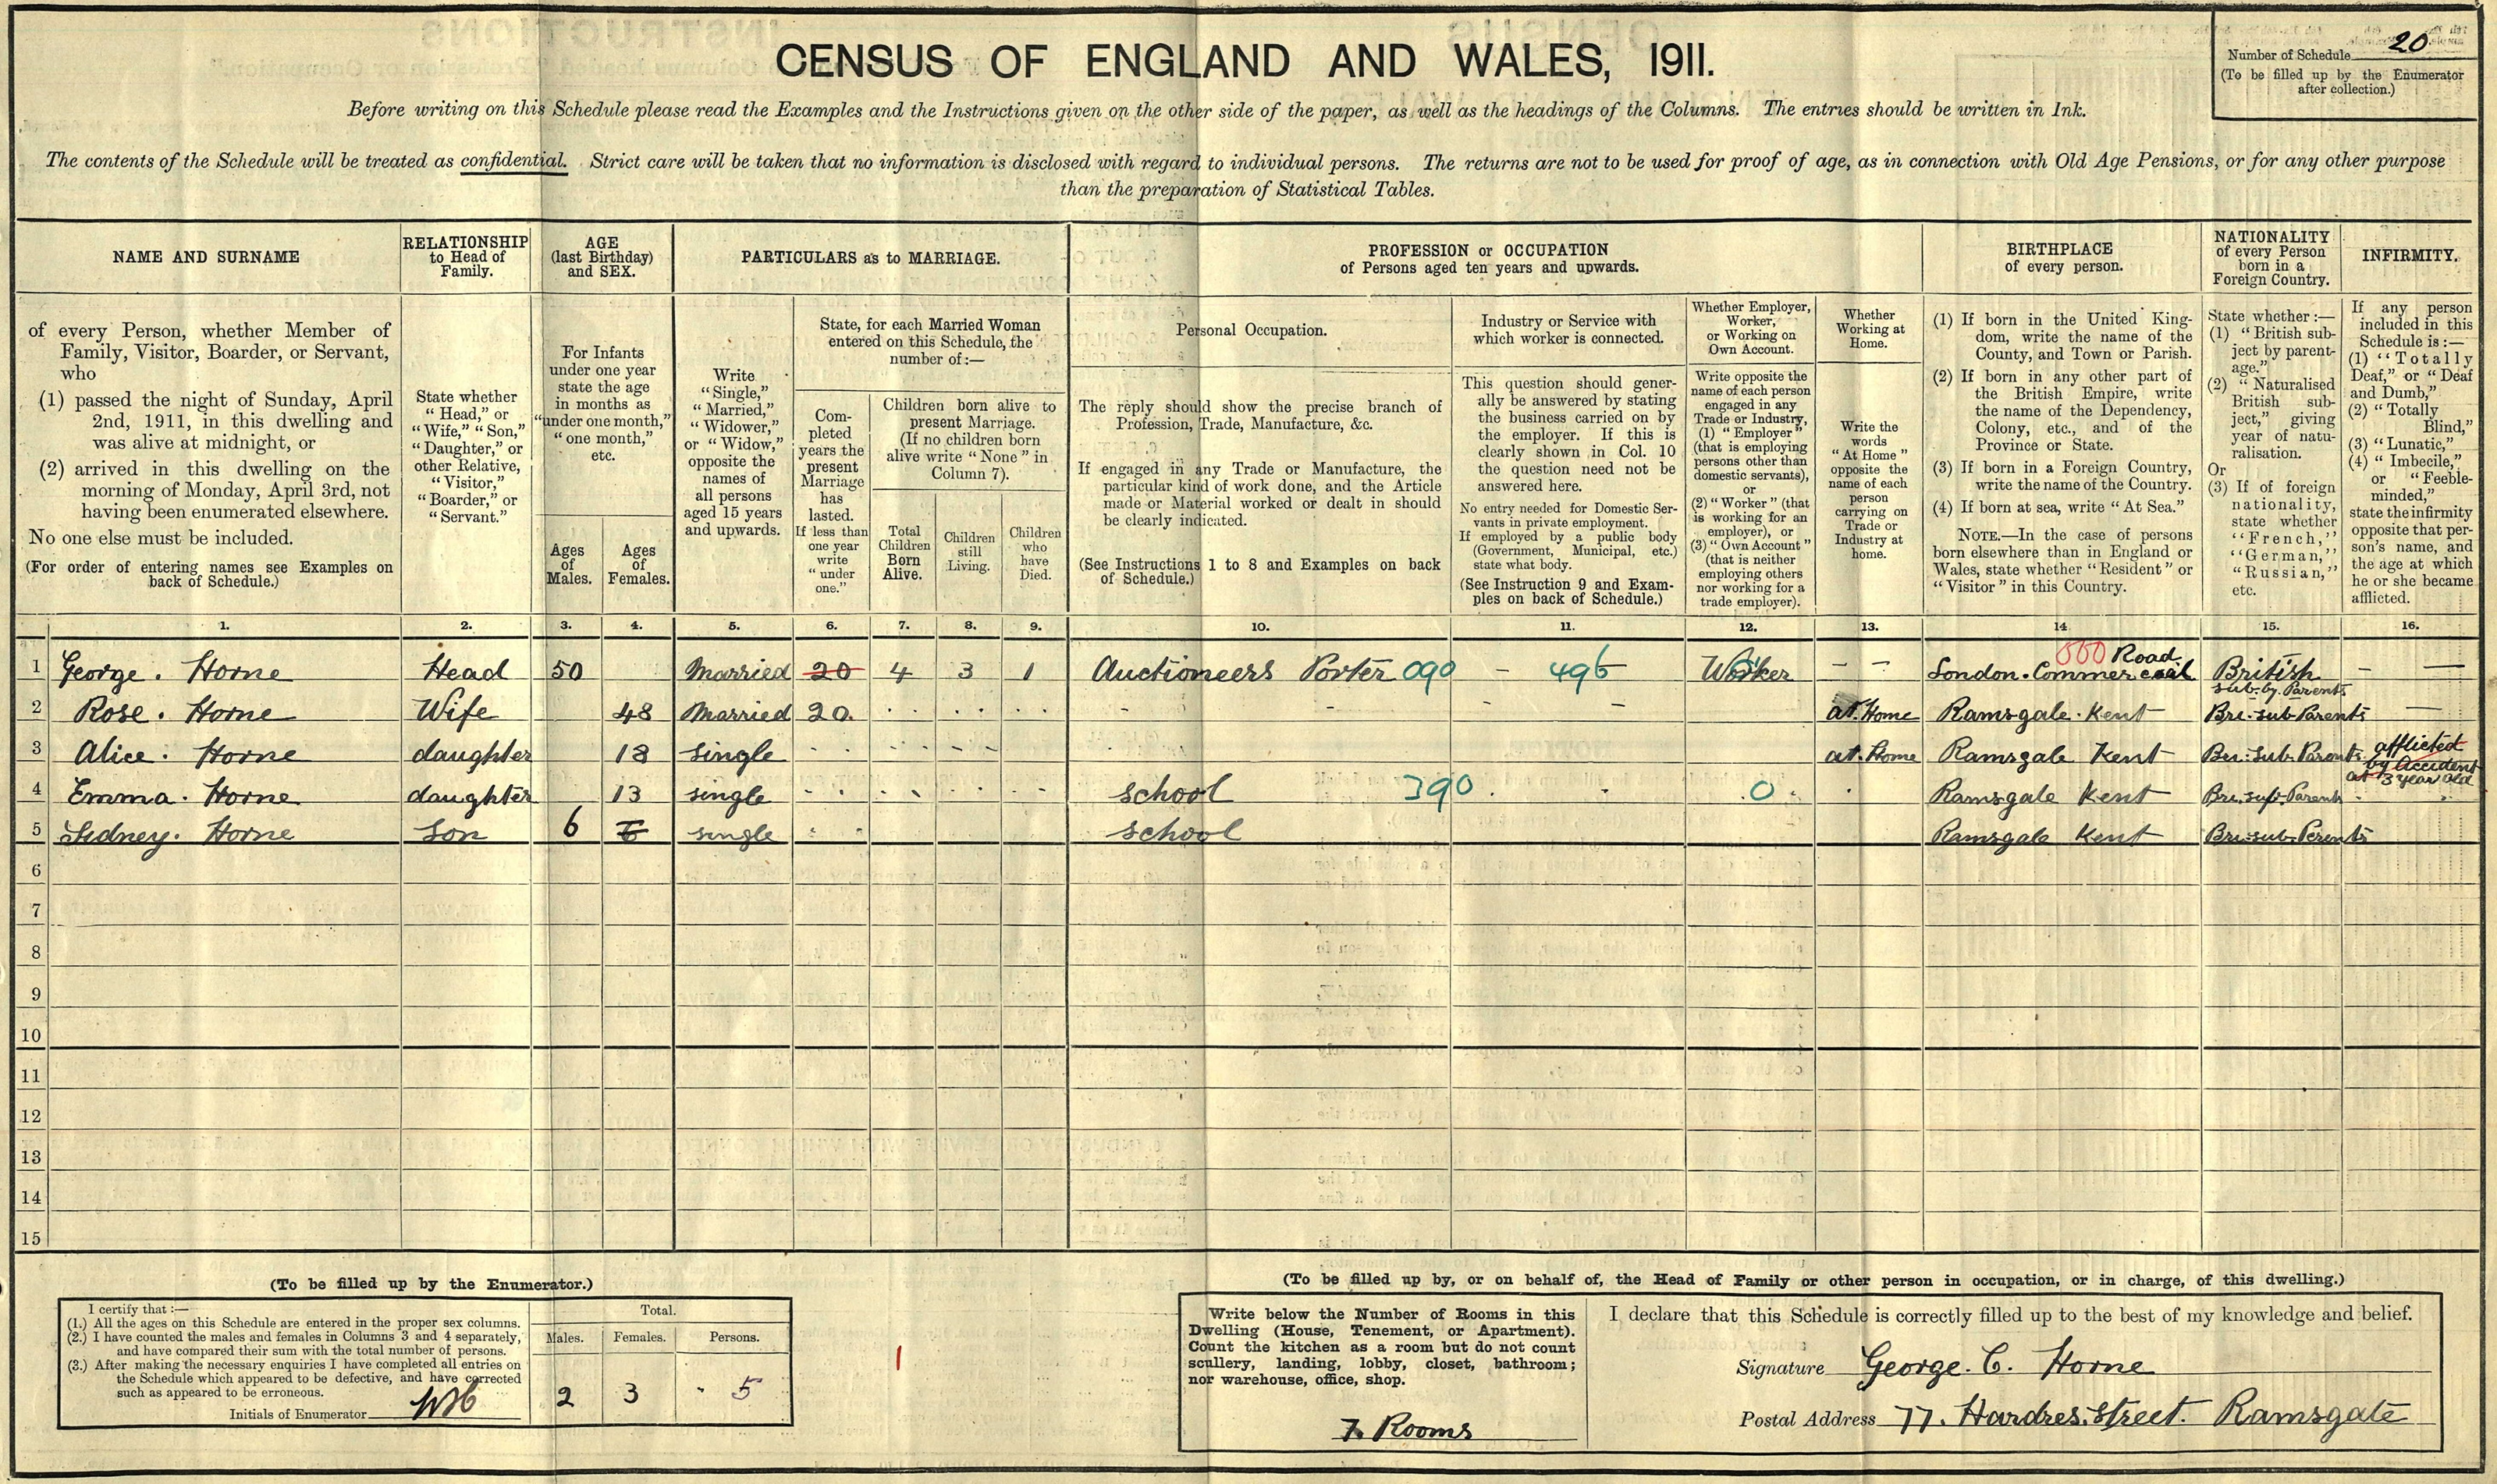 CENSUS OF ENGLAND AND WALES, 1911.
Number of Schedule 20
(To be filled up by the Enumerator
after collection.)
Before writing on this Schedule please read the Examples and the Instructions given on the other side of the paper, as well as the headings of the Columns. The entries should be written in Ink.
The contents of the Schedule will be treated as confidential. Strict care will be taken that no information is disclosed with regard to individual persons. The returns are not to be used for proof of age, as in connection with Old Age Pensions, or for any other purpose
than the preparation of Statistical Tables.
NAME AND SURNAME
of every Person, whether Member of
Family, Visitor, Boarder, or Servant,
who
(1) passed the night of Sunday, April
2nd, 1911, in this dwelling and
was alive at midnight, or
(2) arrived in this dwelling on the
morning of Monday, April 3rd, not
having been enumerated elsewhere.
No one else must be included.
(For order of entering names see Examples on
back of Schedule.)
RELATIONSHIP
to Head of
Family.
State whether
"Head," or
"Wife," "Son,"
"Daughter," or
other Relative,
"Visitor,"
"Boarder," or
"Servant."
AGE
(last Birthday)
and SEX.
For Infants
under one year
state the age
in months as
"under one month,"
"one month,"
etc.
Ages
of
Males.
Ages
of
Females.
PARTICULARS as to MARRIAGE.
Write
"Single,"
"Married,"
"Widower,"
or "Widow,"
opposite the
names of
all persons
aged 15 years
and upwards.
State, for each Married Woman
entered on this Schedule, the
number of:—
Com-
pleted
years the
present
Marriage
has
lasted.
If less than
one year
write
"under
one."
Children born alive to
present Marriage.
(If no children born
alive write "None" in
Column 7).
Total
Children
Born
Alive.
Children
still
Living.
Children
who
have
Died.
PROFESSION or OCCUPATION
of Persons aged ten years and upwards.
Personal Occupation.
The reply should show the precise branch of
Profession, Trade, Manufacture, &c.
If engaged in any Trade or Manufacture, the
particular kind of work done, and the Article
made or Material worked or dealt in should
be clearly indicated.
(See Instructions 1 to 8 and Examples on back
of Schedule.)
Industry or Service with
which worker is connected.
This question should gener-
ally be answered by stating
the business carried on by
the employer. If this is
clearly shown in Col. 10
the question need not be
answered here.
No entry needed for Domestic Ser-
vants in private employment.
If employed by a public body
(Government, Municipal, etc.)
state what body.
(See Instruction 9 and Exam-
ples on back of Schedule.)
Whether Employer,
Worker,
or Working on
Own Account.
Write opposite the
name of each person
engaged in any
Trade or Industry,
(1) "Employer"
(that is employing
persons other than
domestic servants),
or
(2) "Worker" (that
is working for an
employer), or
(3) "Own Account"
(that is neither
employing others
nor working for a
trade employer).
Whether
Working at
Home.
Write the
words
"At Home"
opposite the
name of each
person
carrying on
Trade or
Industry at
home.
BIRTHPLACE
of every person.
(1) If born in the United King-
dom, write the name of the
County, and Town or Parish.
(2) If born in any other part of
the British Empire, write
the name of the Dependency,
Colony, etc., and of the
Province or State.
(3) If born in a Foreign Country,
write the name of the Country.
(4) If born at sea, write "At Sea."
NOTE.—In the case of persons
born elsewhere than in England or
Wales, state whether "Resident" or
"Visitor" in this Country.
NATIONALITY
of every Person
born in a
Foreign Country.
State whether:—
(1) "British sub-
ject by parent-
age."
(2) "Naturalised
British sub-
ject," giving
year of natu-
ralisation.
Or
(3) If of foreign
nationality,
state whether
"French,"
"German,"
"Russian,"
etc.
INFIRMITY.
If any person
included in this
Schedule is:—
(1) "Totally
Deaf," or "Deaf
and Dumb,"
(2) "Totally
Blind,"
(3) "Lunatic,"
(4) "Imbecile,"
or "Feeble-
minded,"
state the infirmity
opposite that per-
son's name, and
the age at which
he or she became
afflicted.
1. 2. 3. 4. 5. 6. 7. 8. 9. 10. 11. 12. 13. 14. 15. 16.
1 George. Horne Head 50 Married 20 4 3 1 Auctioneers Porter 090 – 496 Worker – – London. Commercail Road British sub. by. Parents – —
2 Rose. Horne Wife 48 Married 20. - - - at. Home Ramsgate. Kent Bri. sub Parents —
3 Alice. Horne daughter 18 single at. Home Ramsgate Kent Bri. sub. Parents afflicted by Accident at 3 year old
4 Emma. Horne daughter 13 single school 390 0 Ramsgate Kent Bri. sub. Parents
5 Sidney. Horne Son 6 6 single school Ramsgate Kent Bri. sub. Perents
6
7
8
9
10
11
12
13
14
15
(To be filled up by the Enumerator.)
I certify that:—
(1.) All the ages on this Schedule are entered in the proper sex columns.
(2.) I have counted the males and females in Columns 3 and 4 separately,
and have compared their sum with the total number of persons.
(3.) After making the necessary enquiries I have completed all entries on
the Schedule which appeared to be defective, and have corrected
such as appeared to be erroneous.
Initials of Enumerator
Total.
Males. Females. Persons.
2 3 5
1
(To be filled up by, or on behalf of, the Head of Family or other person in occupation, or in charge, of this dwelling.)
Write below the Number of Rooms in this
Dwelling (House, Tenement, or Apartment).
Count the kitchen as a room but do not count
scullery, landing, lobby, closet, bathroom;
nor warehouse, office, shop.
7. Rooms
I declare that this Schedule is correctly filled up to the best of my knowledge and belief.
Signature George. C. Horne
Postal Address 77. Hardres. Street. Ramsgate